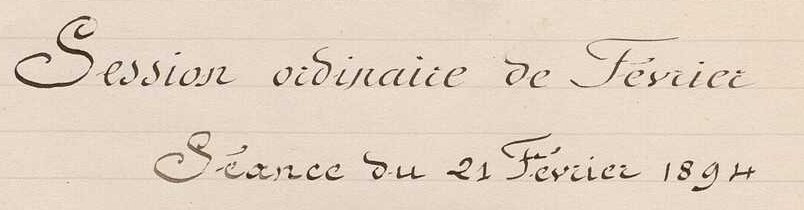 Session ordinaire de Février
Séance du 21 Février 1894